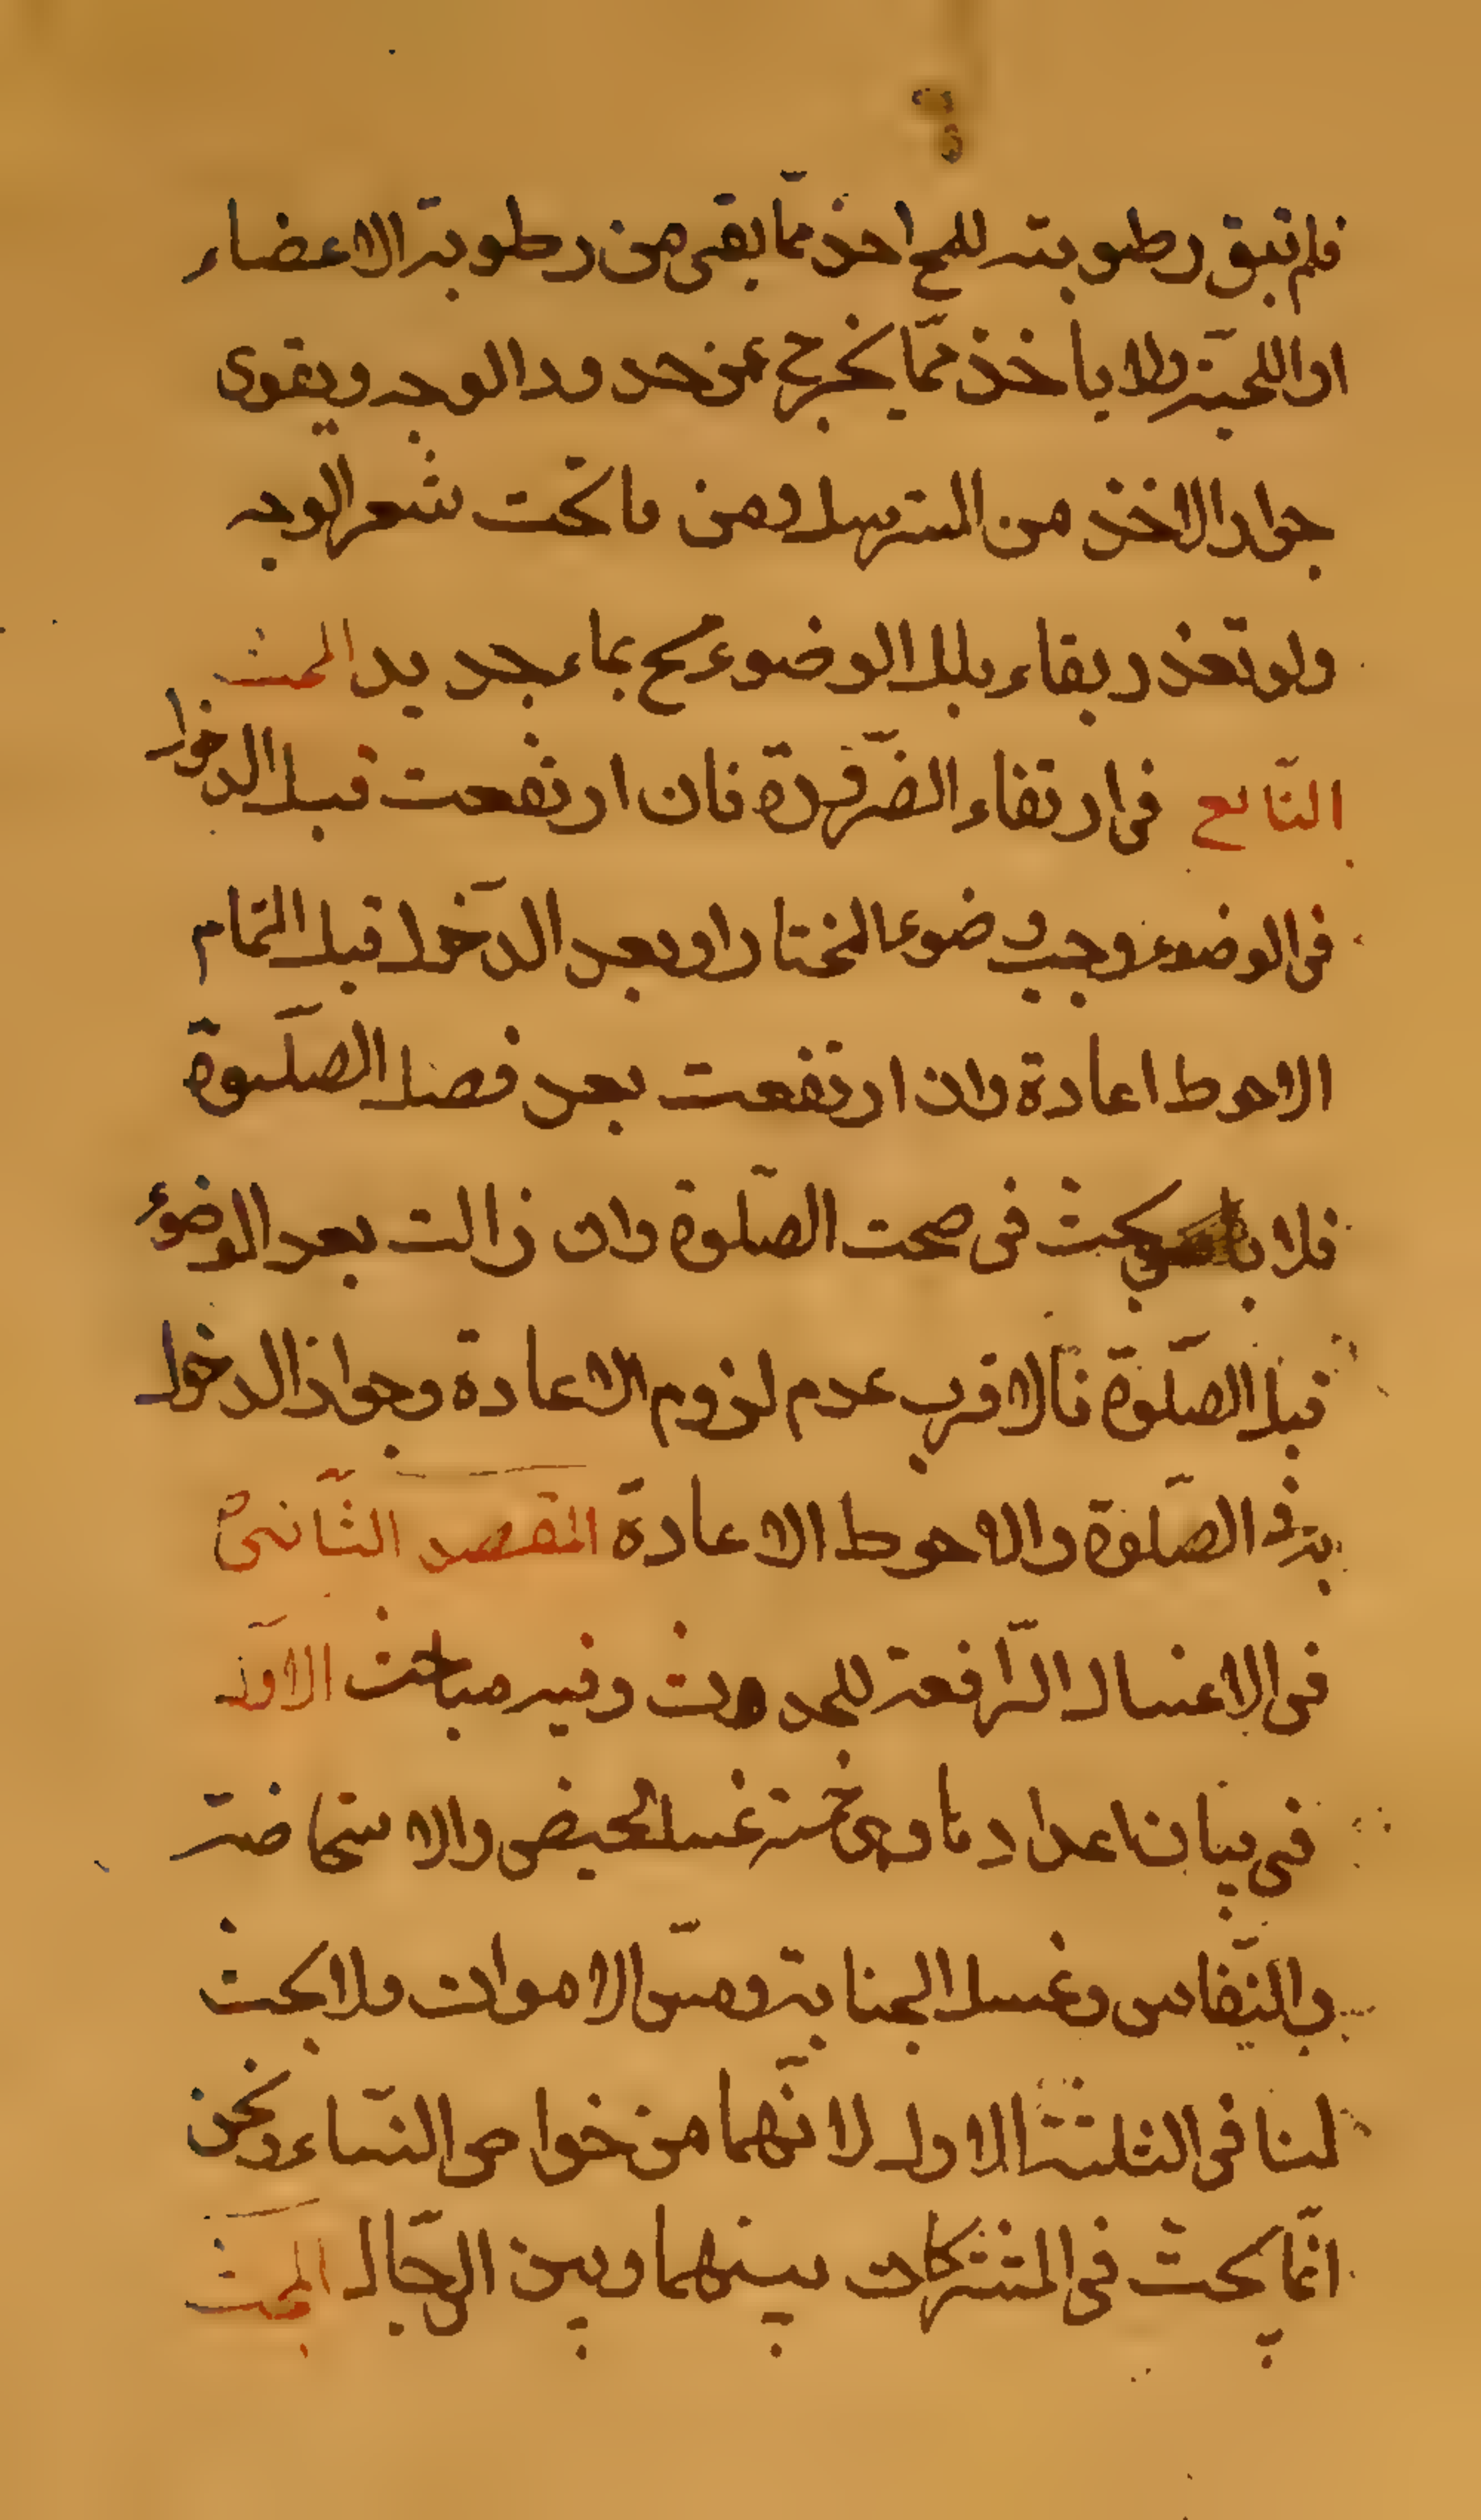 فلم تبق رطوبته للمسح اخذ ممّا بقى من رطوبة الاعضاء
او اللحية ولا ياخذ ممّا يخرج عن حدود الوجه ويقوى
جواز الاخذ من المسترسل ومن ما تحت شعر الوجه
ولو تعذر بقاء بلل الوضوء مسح بماء جديد المبحث
التّاسع فى ارتفاء الضّرورة فان ارتفعت قبل الدخول
فى الوضوء وجب وضوء المختار او بعد الدّخول قبل التمام
الاحوط اعادة وان ارتفعت بعد فصل الصّلوة
فلا بحث فى صحت الصّلوة وان زالت بعد الوضوء
قبل الصّلوة فالاقرب عدم لزوم الاعادة وجواز الدخول
به فى الصّلوة والاحوط الاعادة المقصد الثّانى
فى الاغسال الرّافعة للحدث وفيه مباحث الاوّل
فى بيان اعدادها وهى خمسة غسل الحيض والاستحاضة
والنّفاس وغسل الجنابة ومسّ الاموات ولا بحث
لنا فى الثلثة الاول لانّهما من خواص النّساء ونحن
انّما بحث فى المشتركات بينهما وبين الرّجال المبحث